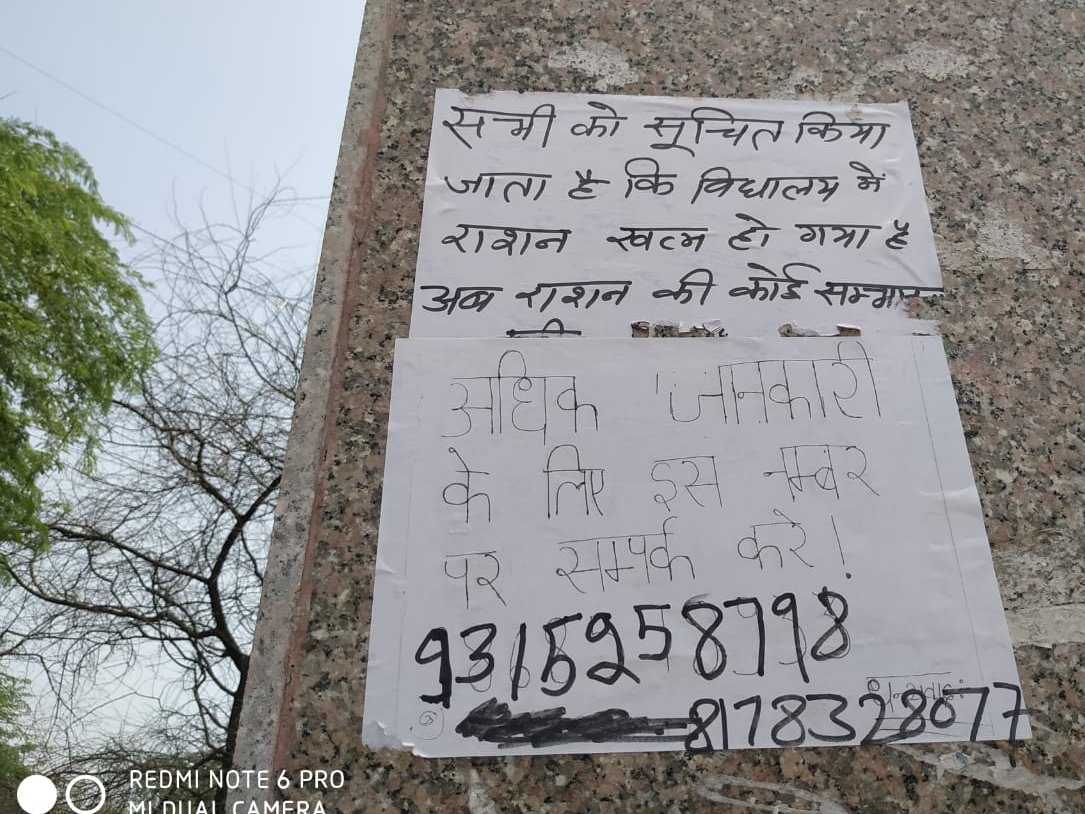 सभी को सूचित किया
जाता है कि विद्यालय में
राशन खत्म हो गया है
अब राशन की कोई
अधिक जानकारी
के लिए इस नम्बर
पर सम्पर्क करे!
9315258798
8178328077
REDMI NOTE 6 PRO
MI DUAL CAMERA